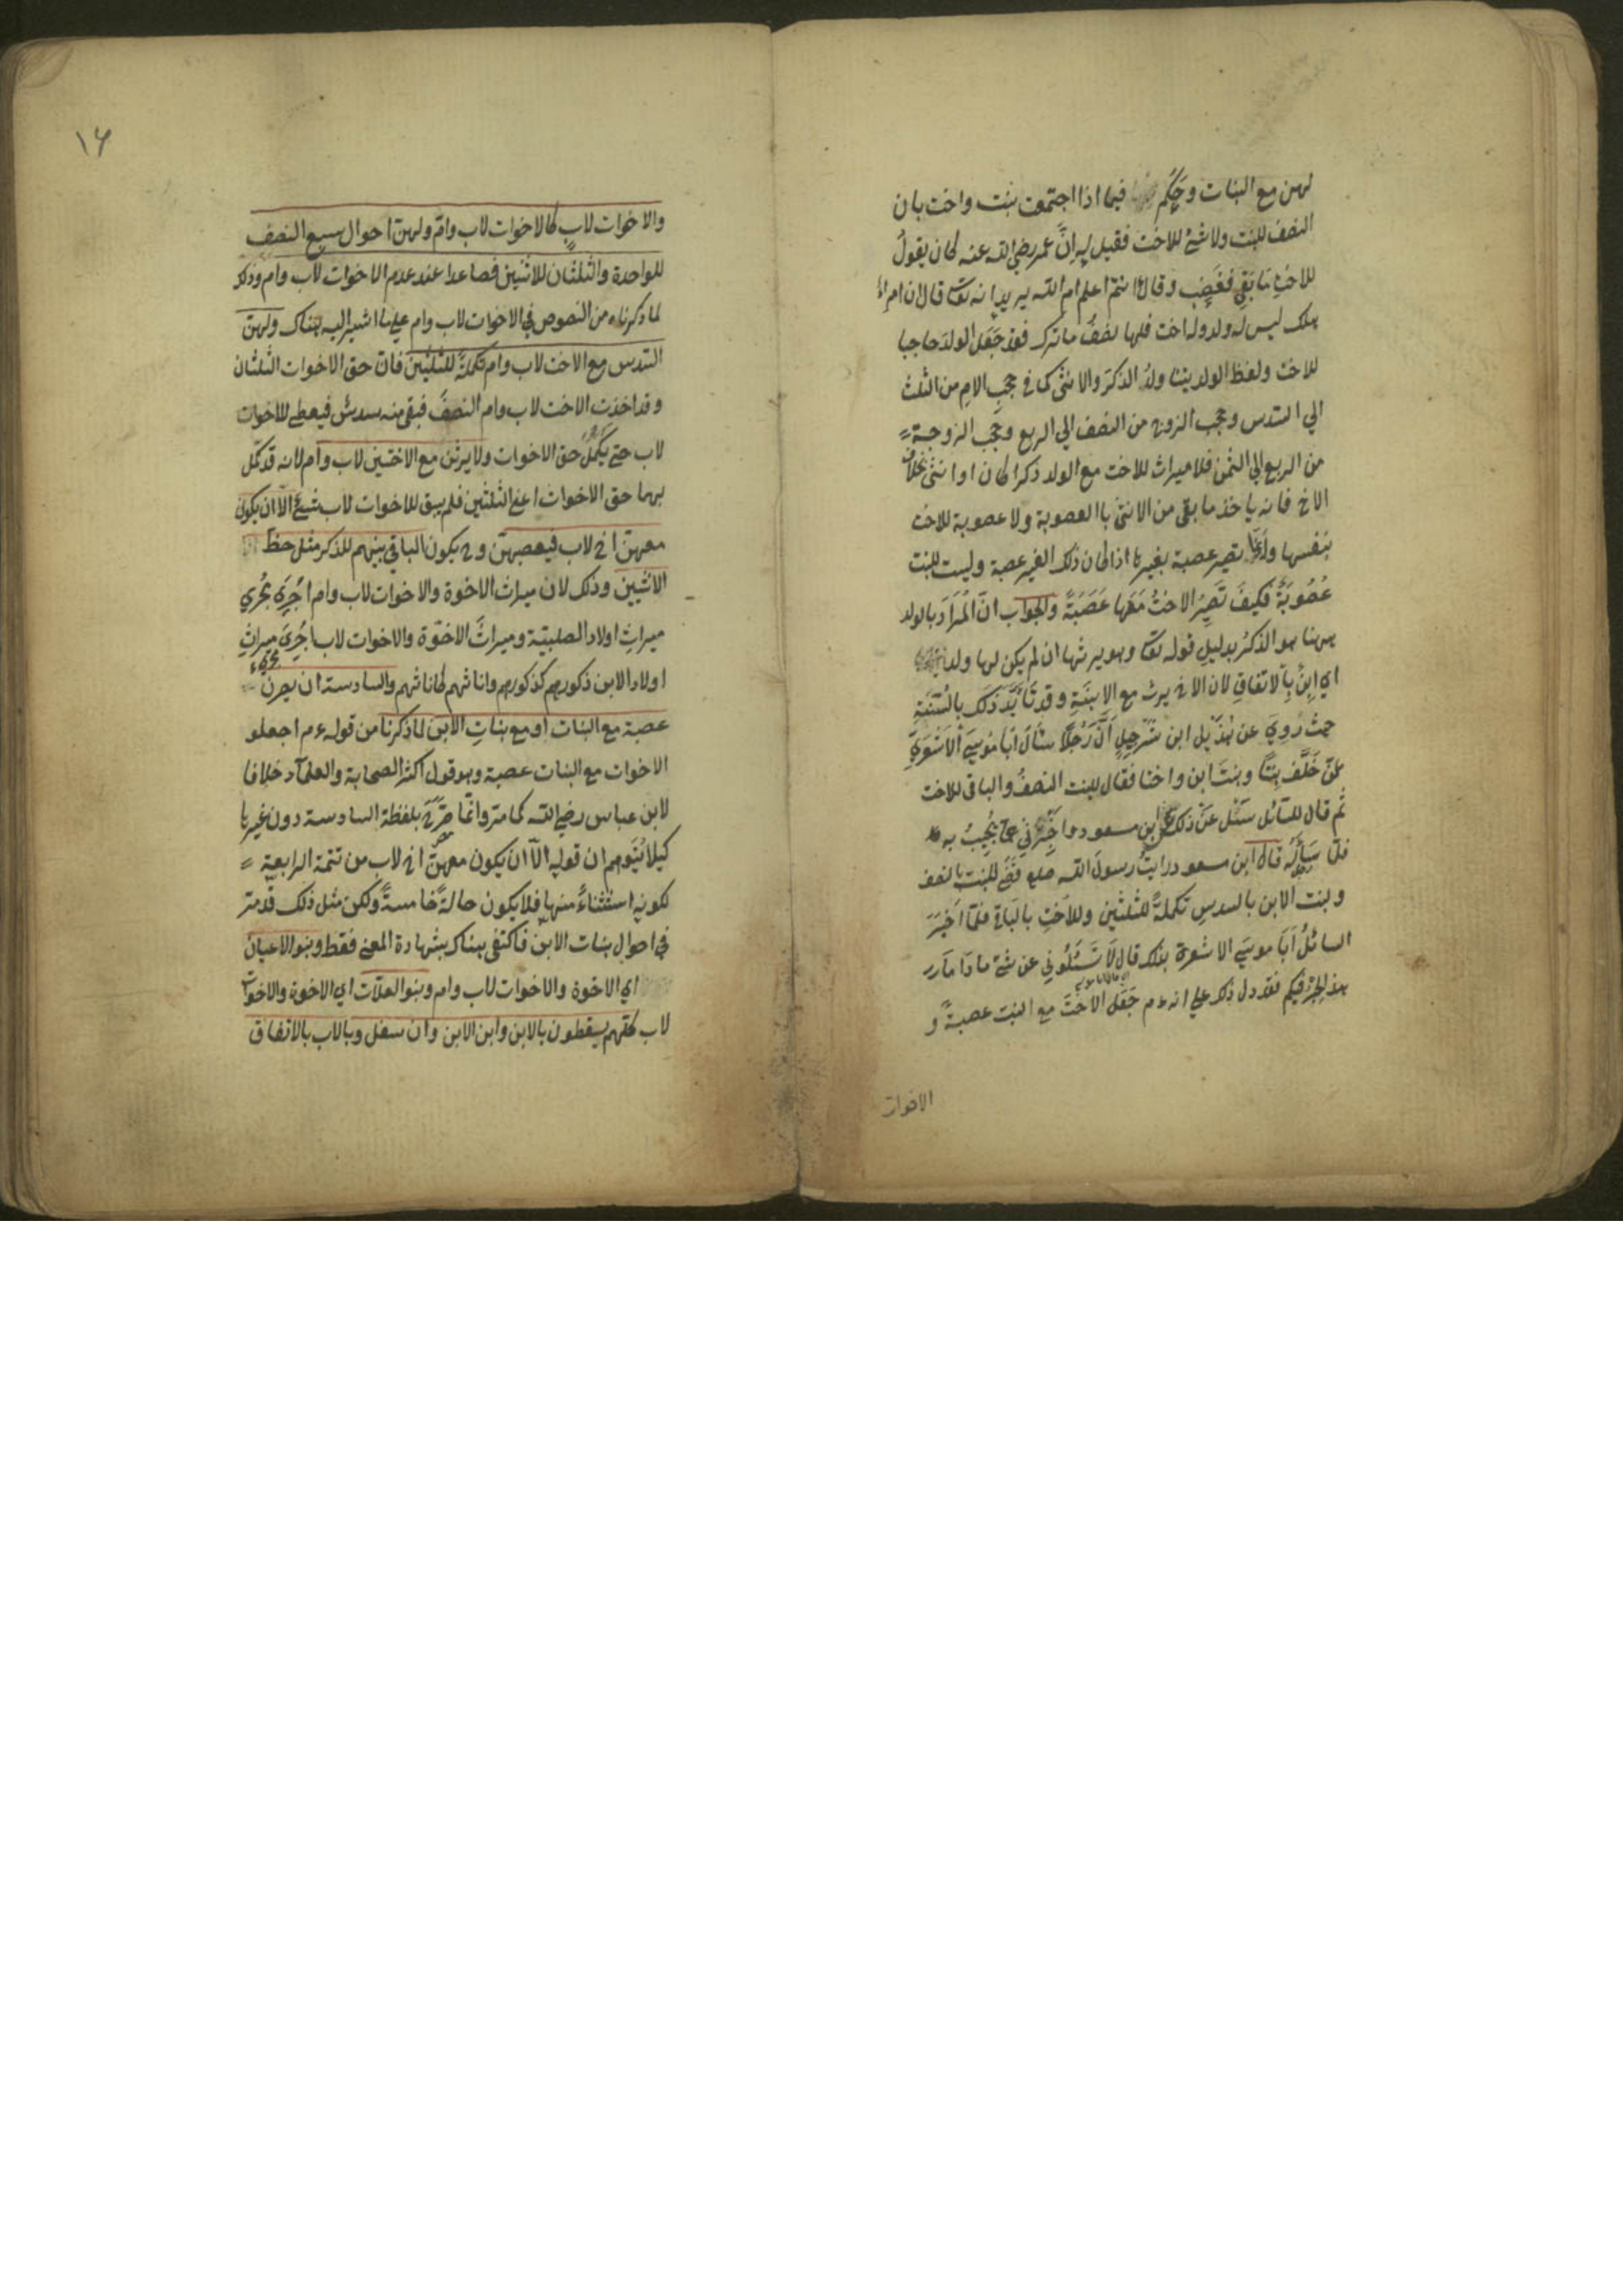 لهن مع البنات وحكم فيما اذا اجتمعت بنت واخت بان
النصف للبنت ولا شئ للاخت فقيل له ان عمر رضي الله عنه كان يقول
للاخت ما بقي فغضب وقال اانتم اعلم ام الله يريد انه تعا قال ان امرء
هلك ليس له ولد وله اخت فلها نصف ما ترك فقد جعل الولد حاجبا
للاخت ولفظ الولد يتناول الذكر والانثى كما في حجب الام من الثلث
الي السدس وحجب الزوج من النصف الي الربع وحجب الزوجة
من الربع الي الثمن فلا ميراث للاخت مع الولد ذكرا كان او انثى بخلاف
الاخ فانه ياخذ ما بقي من الانثى باالعصوبة ولا عصوبة للاخت
بنفسها وانما تصير عصبة بغيرها اذا كان ذلك الغير عصبة وليست للبنت
عُصُوبَةٌ فكيفَ تَصِيرُ الاختُ مَعَها عَصَبَةً والجواب انّ المُرَادَ بالولد
ههنا هو الذكرُ بدليلِ قوله تعا وهو يرثها ان لم يكن لها ولد
اي اِبنٌ بِالاتفاقِ لان الاخ يرث مع الابنَةِ وقد تَأيَّدَ ذلكَ بالسُّنّةِ
حيث رُوِيَ عن هُذَيْل ابن شُرَحبِيلٍ اَنَّ رَجُلًا سَألَ اَبَا مُوسَي الاَشْعَرِيَّ
عمّن خَلَّفَ بِنتًا وبنتَ ابن واختا فقال للبنت النصفُ والباقي للاخت
ثم قال للسائل سَئَل عَنْ ذلك ابن مسعود واخبرني عما يُجِيبُ به
فلما سَأَلَهُ قال ابن مسعود رايتُ رسولَ الله صلعم قَضَي للبنت بالنصف
وبنت الابن بالسدسِ تكملةً للثلثين وللاَختِ بالبَاقي فلمّا اَخبَرَ
السائلُ اَبَا موسَي الاشعري بذلك قال لَا تَسْئَلُوني عن شئ ما دَامَ
هذا الحِبرُ فيكم فقد دل ذلك علي انه ءم جَعَلَ الاُختَ مع البنت عصبةً و
الاخوات
١٦
والاخوات لابٍ كالاخوات لاب وام ولهن احوال سبع النصف
للواحدة والثلثان للاثنين فصاعدا عند عدم الاخوات لاب وام وذلك
لما ذكرناه من النصوص في الاخوات لاب وام علي ما اشير اليه هناك ولهن
السدس مع الاخت لاب وام تكملةً للثلثين فان حق الاخوات الثلثان
وقد اخذت الاخت لاب وام النصفَ فبقي منه سدسٌ فيعطي للاخوات
لاب حتي يكمل حق الاخوات ولا يرثن مع الاختين لاب وام لانه قد كمل
بهما حق الاخوات اعني الثلثين فلم يبق للاخوات لاب شئ الّا ان يكون
معهنّ اخ لاب فيعصبهنّ وح يكون الباقي بينهم للذكر مثل حظّ
الانثيين وذلك لان ميراث الاخوة والاخوات لاب وام اُجرِيَ مُجري
ميراثِ اولاد الصلبيّة وميراثَ الاخوّة والاخوات لاب اُجرِيَ ميراثِ
مجري
اولاد الابن ذكورهم كذكورهم واناثهم كاناثهم والسادسة ان يصرنَ
عصبة مع البنات او مع بناتِ الابن لما ذكرنا من قوله ءم اجعلو
الاخوات مع البنات عصبة وهو قول اكثر الصحابة والعلمآء خلافا
لابن عباس رضي الله كما مر وانما صرّحَ بلفظة السادسة دون غيرها
كيلا يُتَوهم ان قوله الّا ان يكون معهنّ اخ لاب من تتمة الرابعة
لكونه استثناءً منها فلا يكون حالةً خامسةً ولكن مثل ذلك قد مر
في احوال بنات الابن فاكتفي هناك بشهادة المعني فقط وبنو الاعيان
اي الاخوة والاخوات لاب وام وبنو العلّات اي الاخوة والاخوات
لاب كلّهم يسقطون بالابن وابن الابن وان سفل وبالاب بالاتفاق